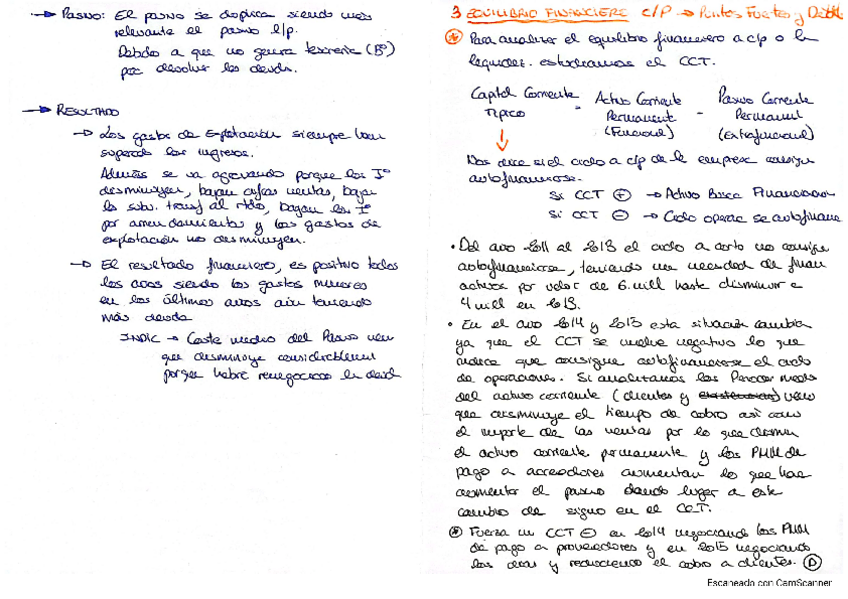 → Pasivo: El pasivo se duplica siendo más
relevante el pasivo l/p.
Debido a que no genera tesorería (Bº)
para devolver la deuda.
→ RESULTADO
→ Los gastos de explotación siempre han
superado los ingresos.
Además se va agravando porque los Iº
disminuyen, bajan cifras ventas, bajan
la subv. transf al rtdo, bajan los Iº
por arrendamientos y los gastos de
explotación no disminuyen.
→ El resultado financiero, es positivo todos
los años siendo los gastos menores
en los últimos años aún teniendo
más deuda
INDIC → Coste medio del Pasivo vemos
que disminuye considerablem
porque habrá renegociado la deud
3 EQUILIBRIO FINANCIERO c/p → Puntos Fuertes y Débil
* Para analizar el equilibrio financiero a c/p o la
liquidez. estudiamos el CCT.
Capital Corriente Típico = Activo Corriente Permanent (Funcional) - Pasivo Corriente Permanent (Extrafuncional)
↓
Nos dice si el ciclo a c/p de la empresa consigue
autofinanciarse.
Si CCT + → Activo Busca Financiacion
Si CCT - → Ciclo operac se autofinanc
• Del año 2011 al 2013 el ciclo a corto no consigue
autofinanciarse, teniendo una necesidad de finan
activos por valor de 6. mill hasta disminuir a
4 mill en 2013.
• En el año 2014 y 2015 esta situación cambia
ya que el CCT se vuelve negativo lo que
indica que consigue autofinanciarse el ciclo
de operaciones. Si analizamos los Periodos medi
del activo corriente (clientes y ) vemo
que disminuye el tiempo de cobro así como
el importe de las ventas por lo que dismin
el activo corriente permanente y los PMM de
pago a acreedores aumentan lo que hac
aumentar el pasivo dando lugar a este
cambio de signo en el CCT.
* Fuerza un CCT - en 2014 negociando los PMM
de pago a proveedores y en 2015 negociando
los dias y reduciendo el cobro a clientes. D
Escaneado con CamScanner